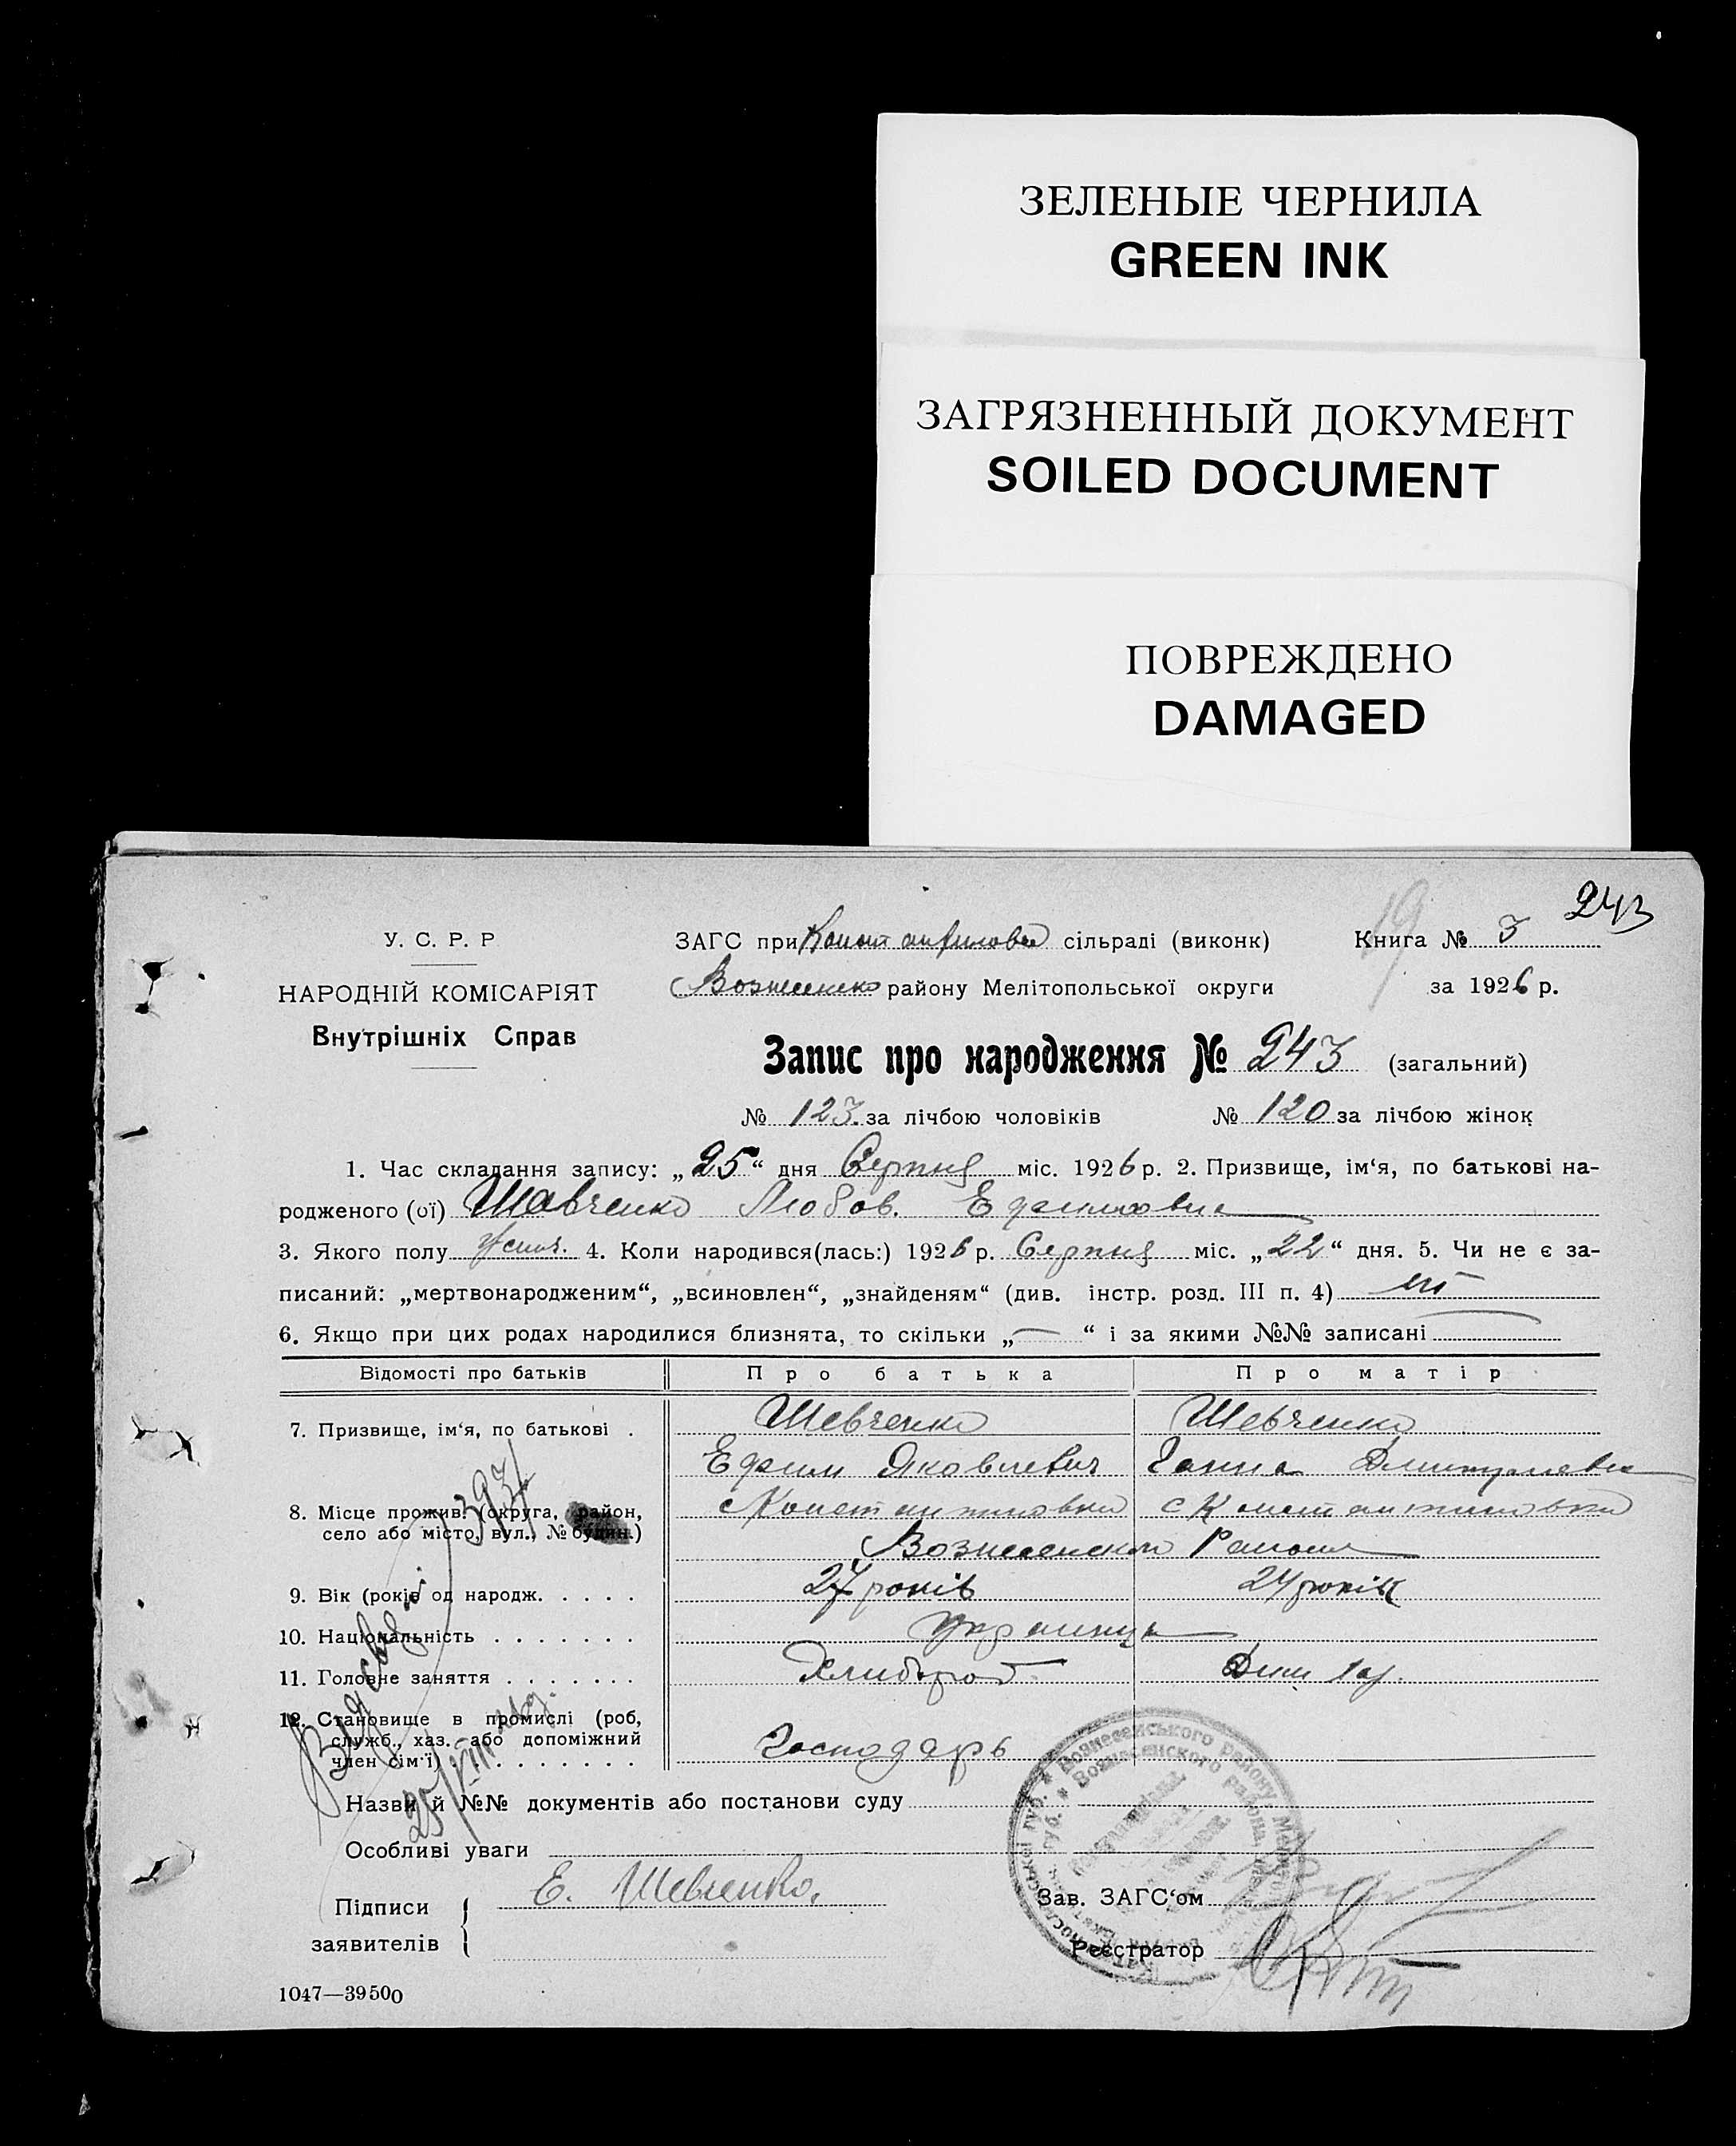 ЗЕЛЕНЫЕ ЧЕРНИЛА
GREEN INK
ЗАГРЯЗНЕННЫЙ ДОКУМЕНТ
SOILED DOCUMENT
ПОВРЕЖДЕНО
DAMAGED
243
19
У. С. Р. Р
НАРОДНІЙ КОМІСАРІЯТ
Внутрішніх Справ
ЗАГС при сільраді (виконк)
Книга № 3
Вознесенск району Мелітопольської округи
за 1926 р.
Запис про народження № 243 (загальний)
№ 123. за лічбою чоловіків № 120 за лічбою жінок
1. Час складання запису: „25“ дня Серпня міс. 1926 р. 2. Призвище, ім‘я, по батькові на-
родженого (ої) Шевченко Любов. Ефимовна
3. Якого полу жіноч. 4. Коли народився(лась:) 1926 р. Серпня міс. „22“ дня. 5. Чи не є за-
писаний: „мертвонародженим“, „всиновлен“, „знайденям“ (див. інстр. розд. III п. 4) ні
6. Якщо при цих родах народилися близнята, то скільки „—“ і за якими №№ записані
Відомості про батьків Про батька Про матір
7. Призвище, ім‘я, по батькові . Шевченко Шевченко
Ефим Яковлевич Ганна
8. Місце прожив. (округа, район, с Константиновка с Константиновка
село або місто, вул., № будин.)
Вознесенского Района
9. Вік (років од народж. . . . . 27 років 24 років
10. Національність . . . . . . . Украинцы
11. Головне заняття . . . . . . . Хлибороб
12. Становище в промислі (роб,
служб., хаз. або допоміжний
член сім‘ї) . . . . . . . . . Господарь
Назви й №№ документів або постанови суду
Особливі уваги
Підписи
заявителів
Е. Шевченко.
Зав. ЗАГС‘ом
Реєстратор
1047—39500
Вознесенського району
Вознесенского района